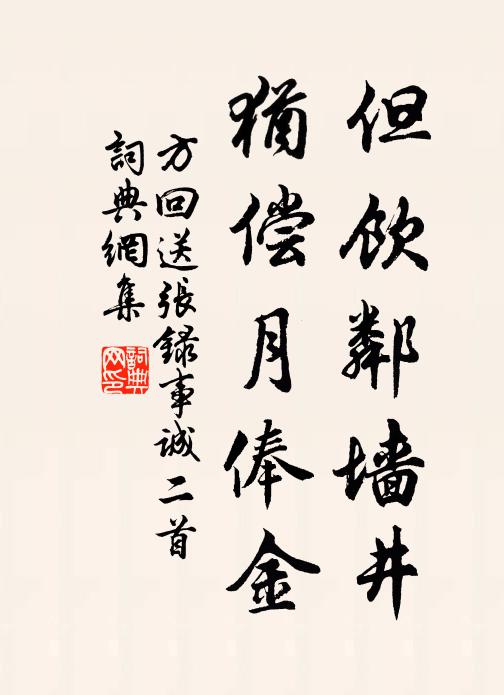 但饮鄰墙井
猶偿月俸金
方回送張録事诚二首
詞典網集
詞典
网印